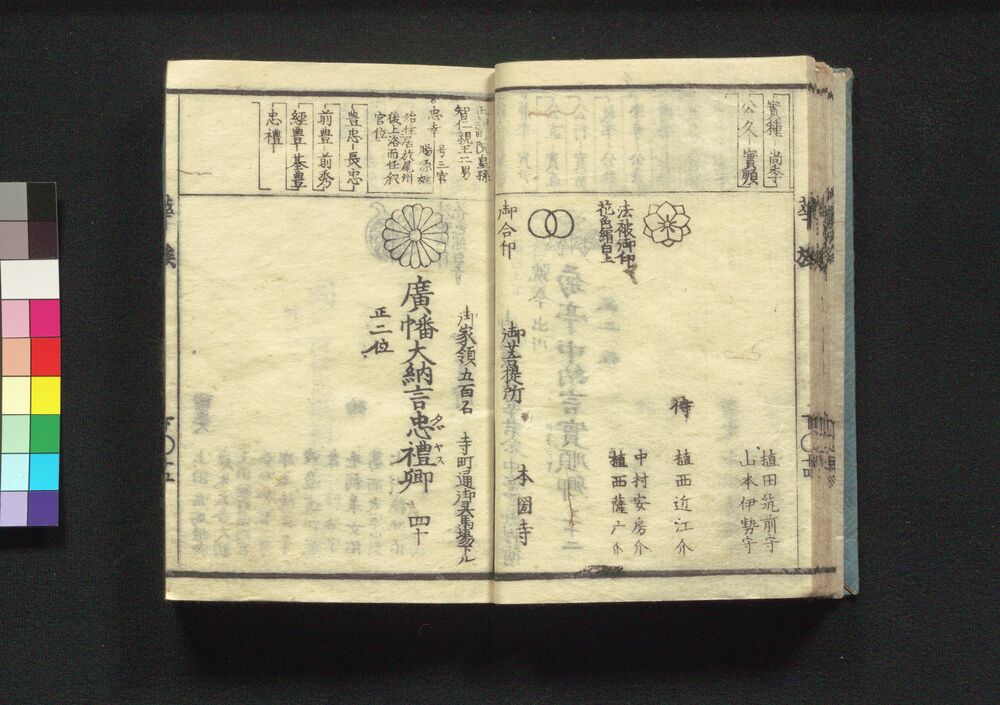 實種 尚季
公久 實順
植田筑前守
山本伊勢守
侍
植西近江介
中村安房介
植西薩广介
法被御印
花色絹白上
御合印
御菩提所
本圀寺
智仁親王二男
忠幸
号三宮
賜源姓
始住居於尾州
後上洛而任叙
官位
豊忠 長忠
前豊 前秀
經豊 基豊
忠禮
御家領五百石 寺町通御具馬場下ル
廣幡大納言忠禮卿 四十
タヾヤス
正二位
華族